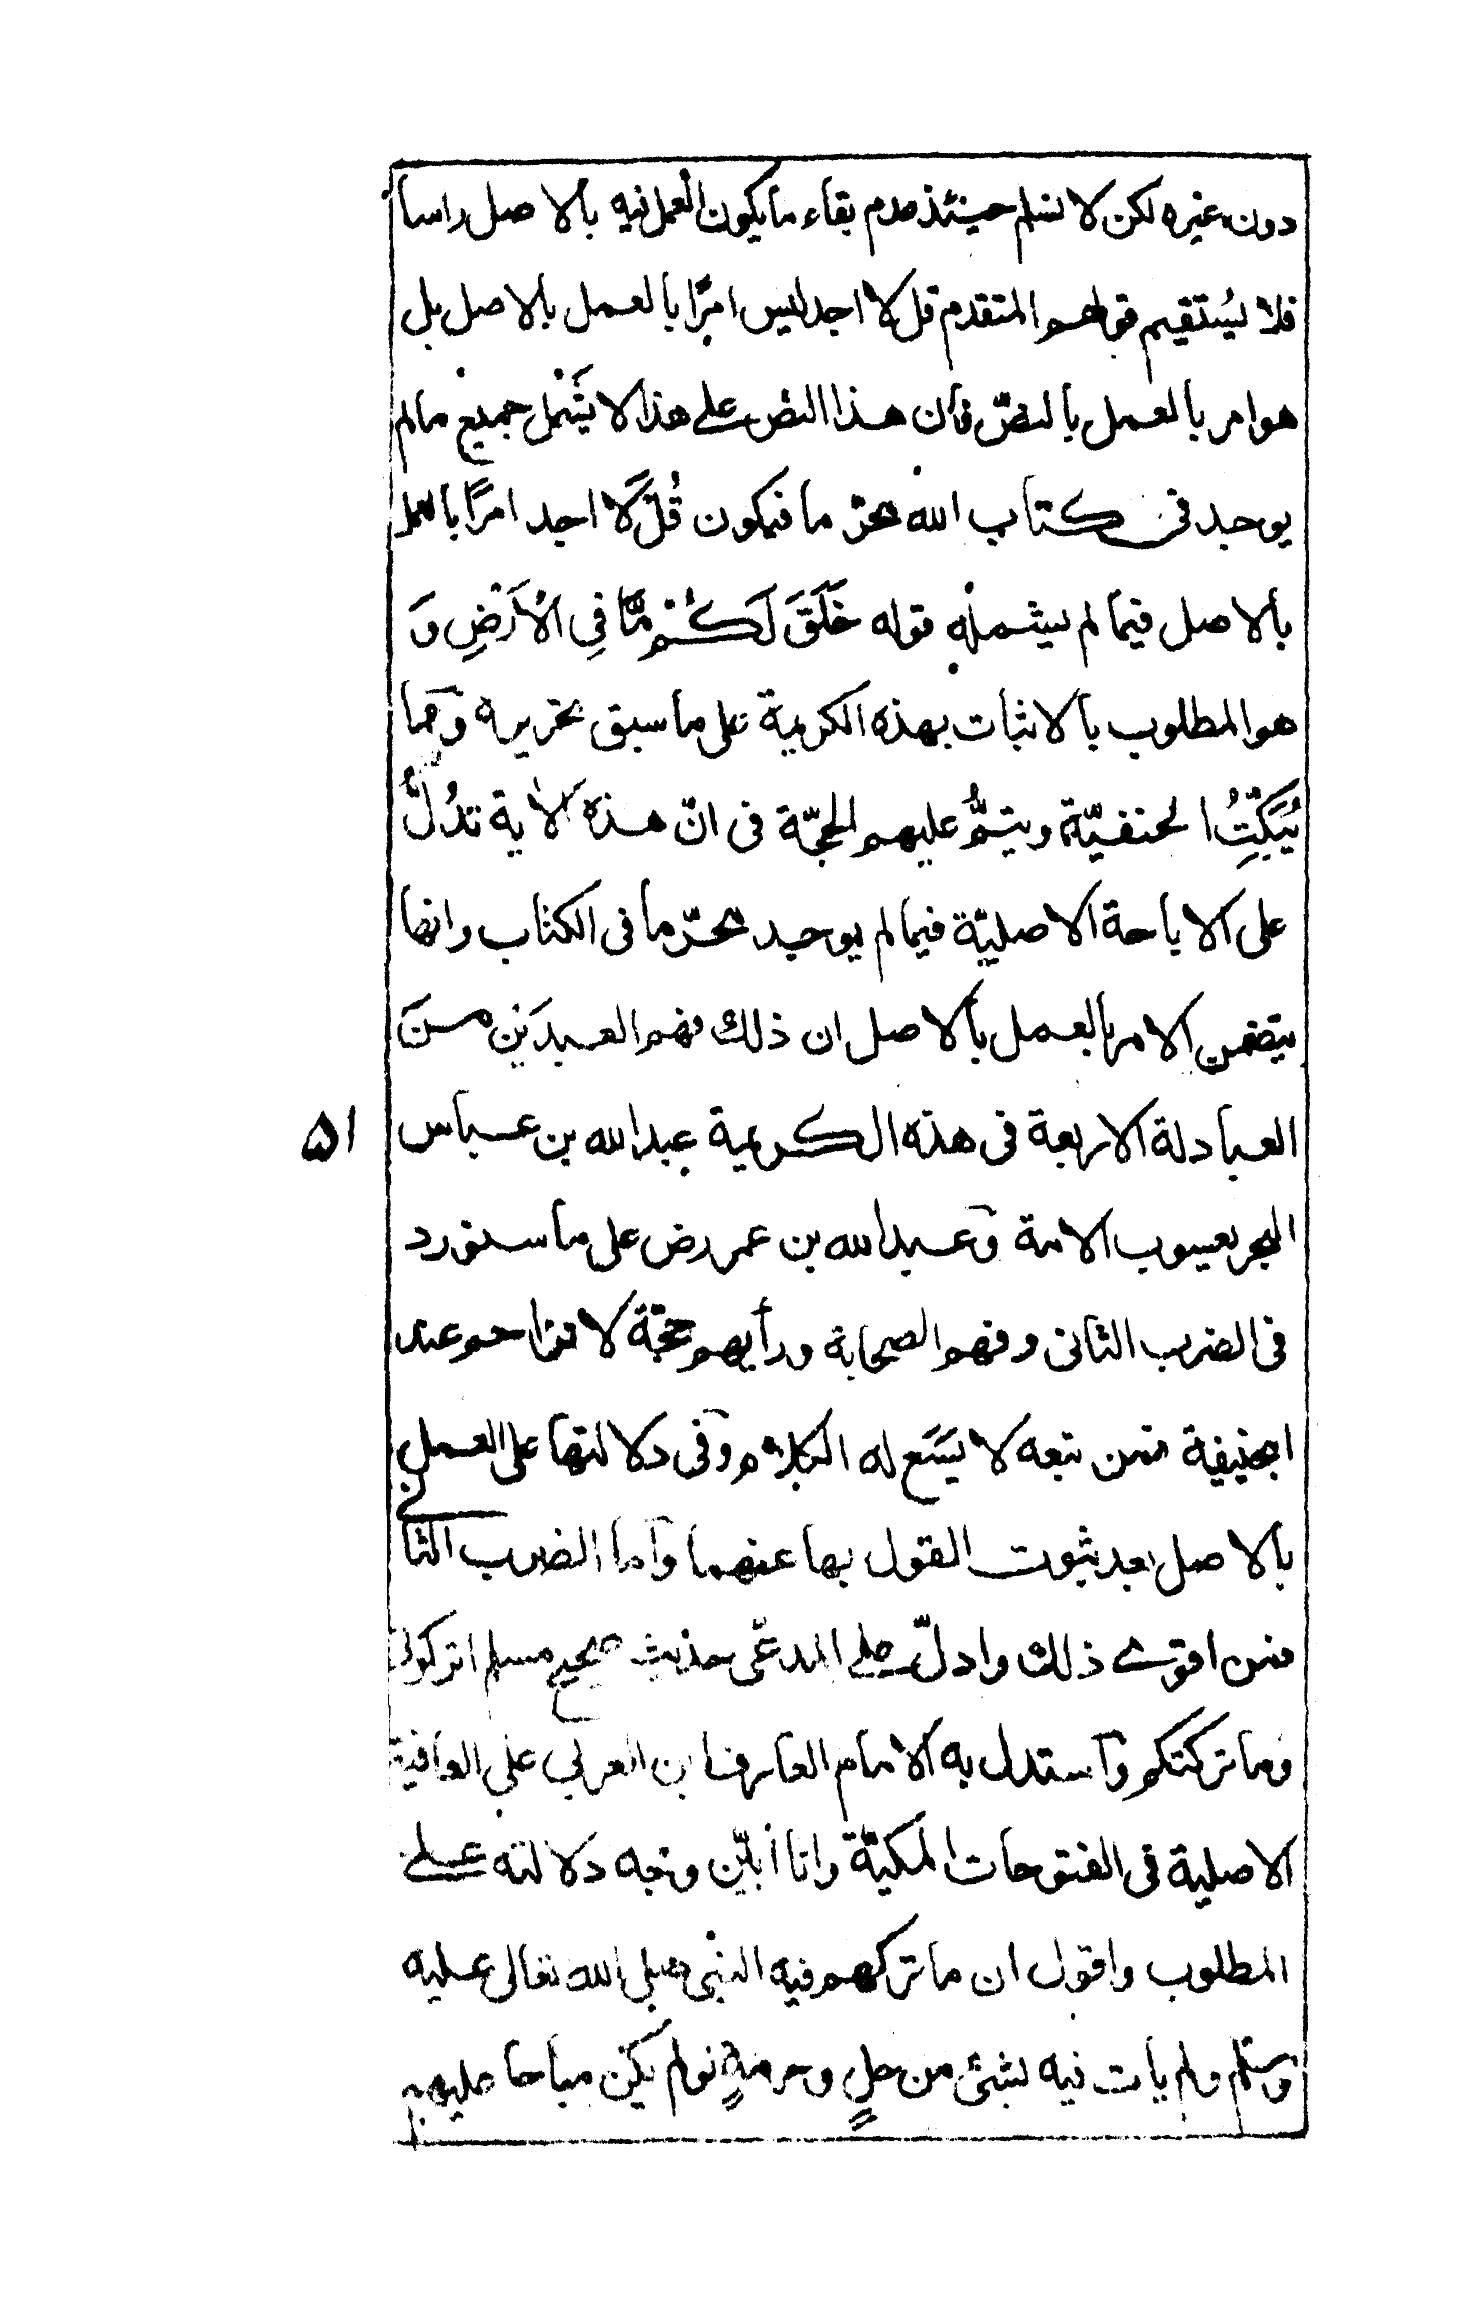 دون غيره لكن لا نسلم حينئذ عدم بقاء ما يكون العمل فيه بالاصل راسا
فلا يستقيم قولهم المتقدم قل لا اجد ليس امرًا بالعمل بالاصل بل
هو امر بالعمل بالنصّ فان هذا النص على هذا لا يشمل جميع ما لم
يوجد في كتاب الله محرّما فيكون قُلْ لَّا اجد امرًا بالعمل
بالاصل فيما لم يشمله قوله خَلَقَ لَكُمْ مَّا فِي الْاَرْضِ وَ
هو المطلوب بالاثبات بهذه الكريمة على ما سبق تحريره ومما
يُبَكِّتُ الحنفيّة ويتمُّ عليهم الحجّة في انّ هذه الاٰية تدُلُّ
على الاباحة الاصليّة فيما لم يوجد محرّما في الكتاب وانها
يتضمن الامر بالعمل بالاصل ان ذلك فهم العبدَين منَ
العبادلة الاربعة في هذه الكريمة عبد الله بن عباس
البحر يعسوب الامة وعبد الله بن عمر رض على ما سنورد
في الضرب الثاني وفهم الصحابة ورأيهم حجّة لا تزاحم عند
ابحنيفة فمن تبعه لا يَسَع له الكلام وفي دلالتها على العمل
بالاصل بعد ثبوت القول بها عنهما واما الضرب الثاني
فمن اقوى ذلك وادلّ على المدعّى حديث صحيح مسلم اتركوني
وما تركتكم واستدل به الامام العارف ابن العربي على العافية
الاصلية في الفتوحات المكيّة وانا أبيّن وجه دلالته على
المطلوب واقول ان ما تركهم فيه النبي صلى الله تعالى عليه
وسلم ولم يات فيه بشئ من حلٍ وحرمةٍ لو لم يكن مباحا عليهم
۵۱